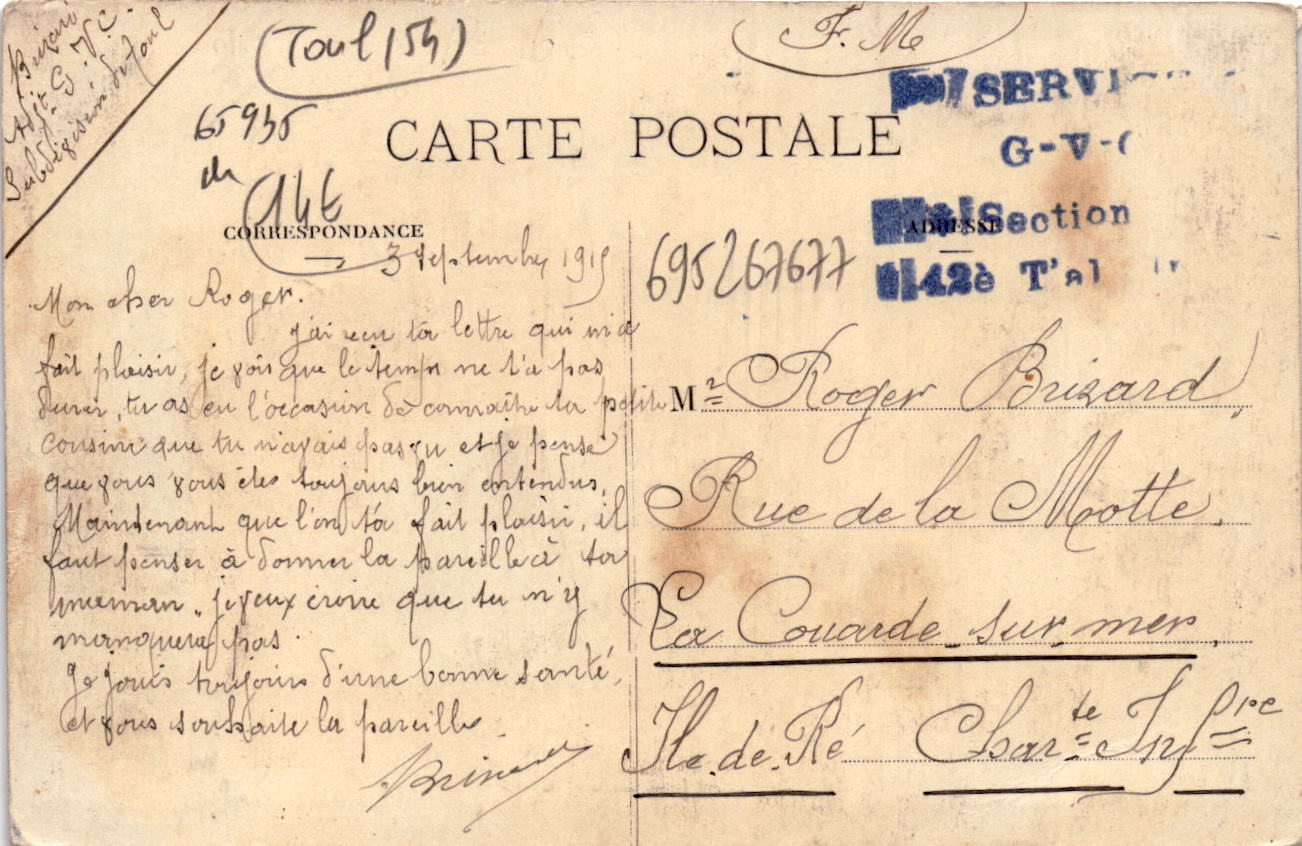 Brizard
Adjt G.V.C.
Subdégision de Toul
(Toul (54)
F. M
65935
de
14t
SERVI
G-V-C
Section
42è T'al
CARTE POSTALE
CORRESPONDANCE
ADRESSE
3 Septembre 1915
695267677
Mon cher Roger.
j'ai reçu ta lettre qui m'a
fait plaisir, je vois que le temps ne t'a pas
durer, tu as eu l'occasion de connaître ta petite
cousine que tu n'avais pas vu et je pense
que vous vous êtes toujours bien entendus,
Maintenant que l'on t'a fait plaisir, il
faut penser à donner la pareille à ta
meman, je veux croire que tu n'y
manquera pas.
Je jouis toujours d'une bonne santé,
et vous souhaite la pareille
Mr Roger Brizard,
Rue de la Motte,
La Couarde sur mer,
Ile de Ré Charte Infre